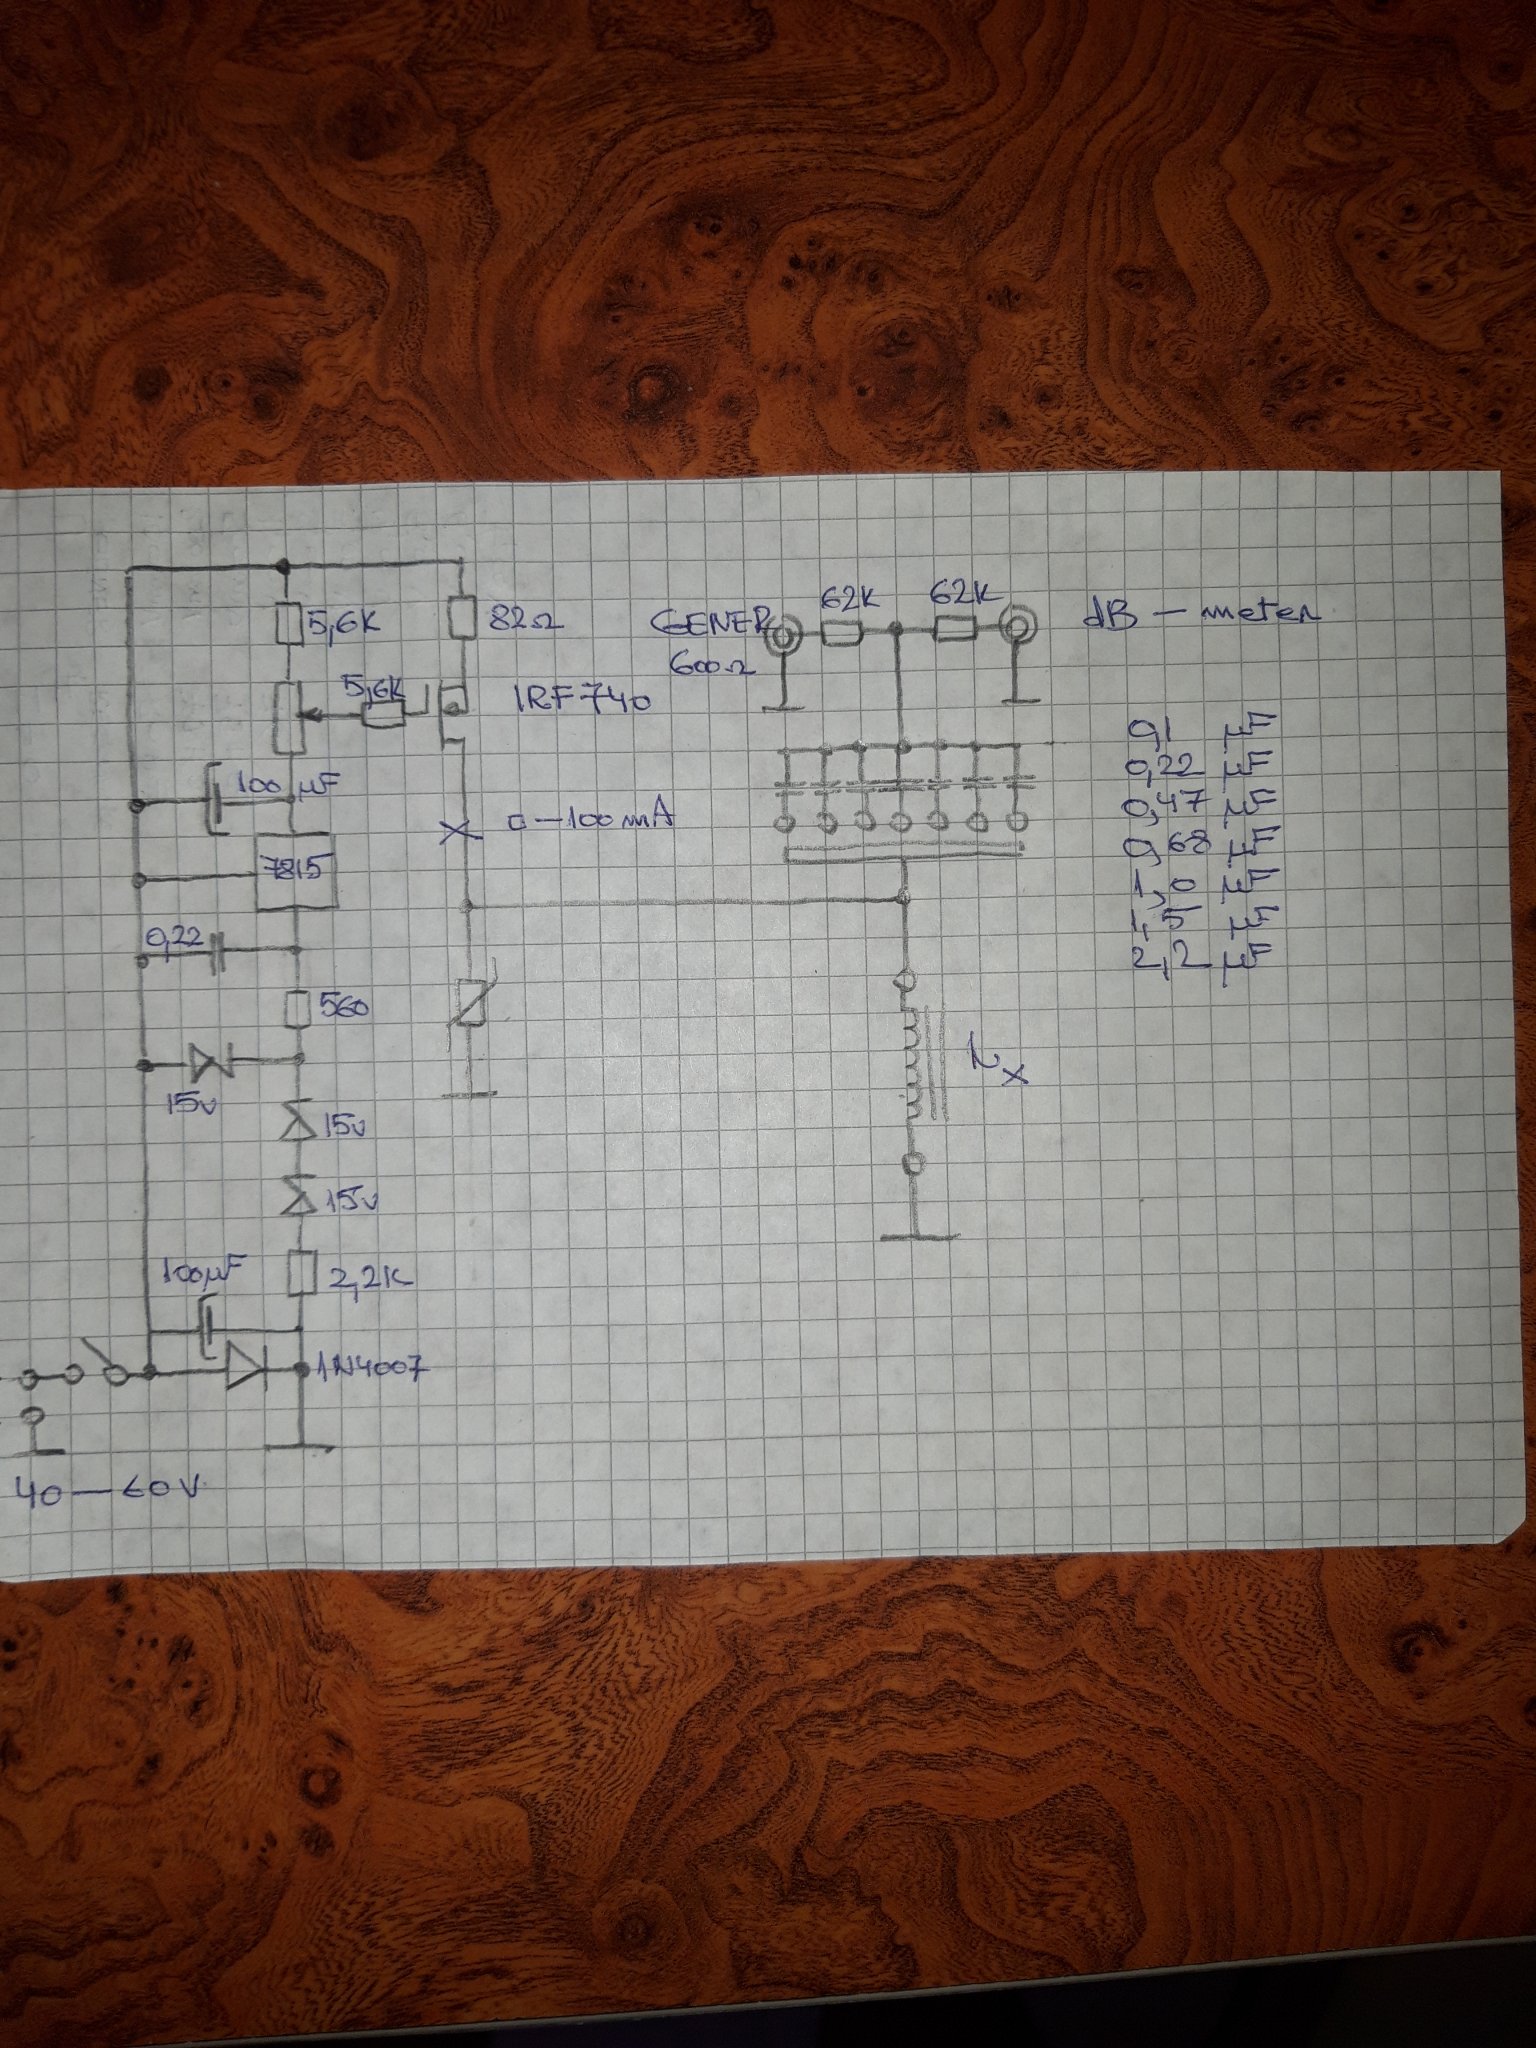 5,6K
82Ω
5,6K
IRF740
100 µF
0—100mA
7815
0,22
560
15v
15v
15v
100µF
2,2K
1N4007
40—60V
GENER
600Ω
62K
62K
dB - meter
0,22 µF
0,47 µF
0,68 µF
1,0 µF
1,5 µF
2,2 µF
Lx